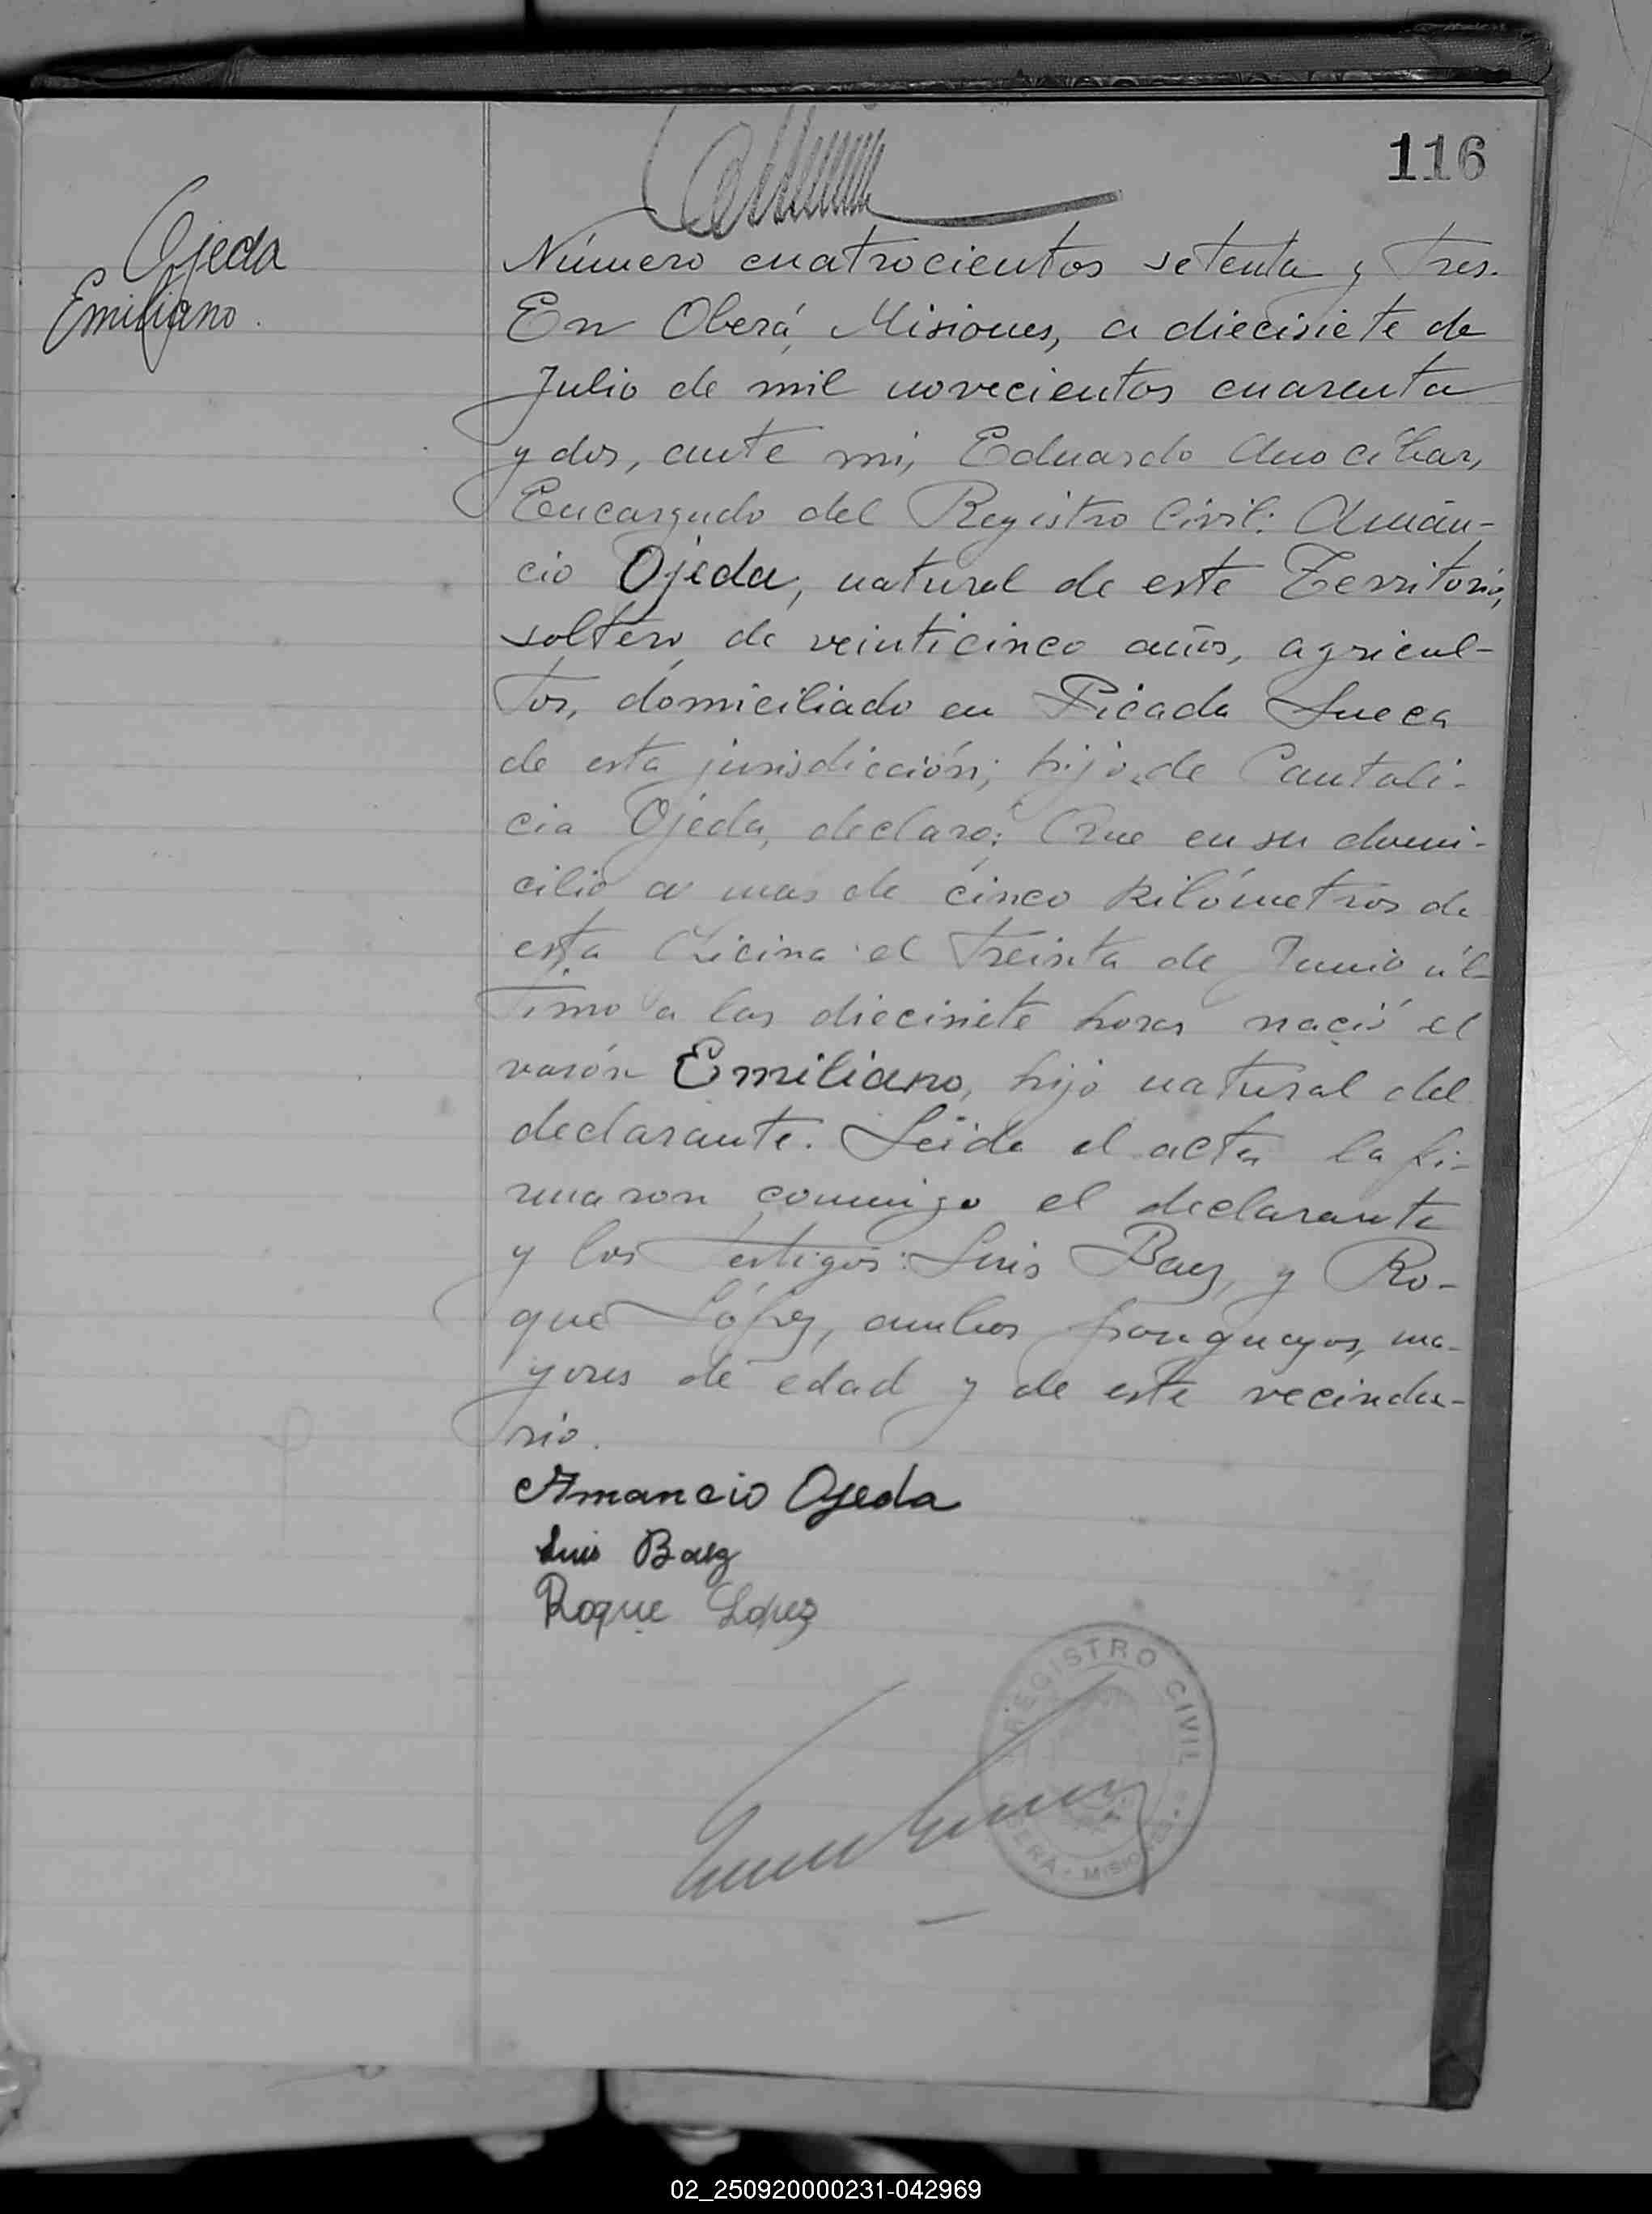 116
Ojeda
Emiliano.
Número cuatrocientos setenta y tres.
En Oberá, Misiones, a diecisiete de
Julio de mil novecientos cuarenta
y dos, ante mi, Eduardo
Encargado del Registro Civil: Amán-
cio Ojeda, natural de este Territorio,
soltero de veinticinco años, agricul-
tor, domiciliado en Picada Sueca
de esta jurisdicción; hijo de Cantali-
cia Ojeda, declaró: Que en su domi-
cilio a mas de cinco kilómetros de
esta Oficina el treinta de Junio úl-
timo a las diecisiete horas nació el
varón Emiliano, hijo natural del
declarante. Leida el acta la fi-
rmaron conmigo el declarante
y los testigos: Luis Baez, y Ro-
que López, ambos paraguayos, ma-
yores de edad y de este vecinda-
rio.
Amancio Ojeda
Luis Baez
Roque Lopez
REGISTRO CIVIL
OBERÁ - MISIONES
02_250920000231-042969